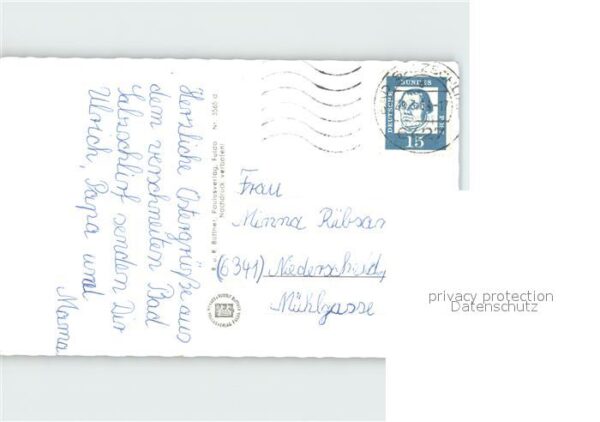 Herzliche Ostergrüße aus
dem verschneiten Bad
Salzschlirf senden Dir
Ulrich, Papa und
Mama
B. u. R. Büttner, Paulusverlag, Fulda Nr. 5565 d
Nachdruck verboten!
DEUTSCHE BUNDES
15
Frau
Minna Rübsam
(6341) Niederscheld
Mühlgasse
privacy protection
Datenschutz